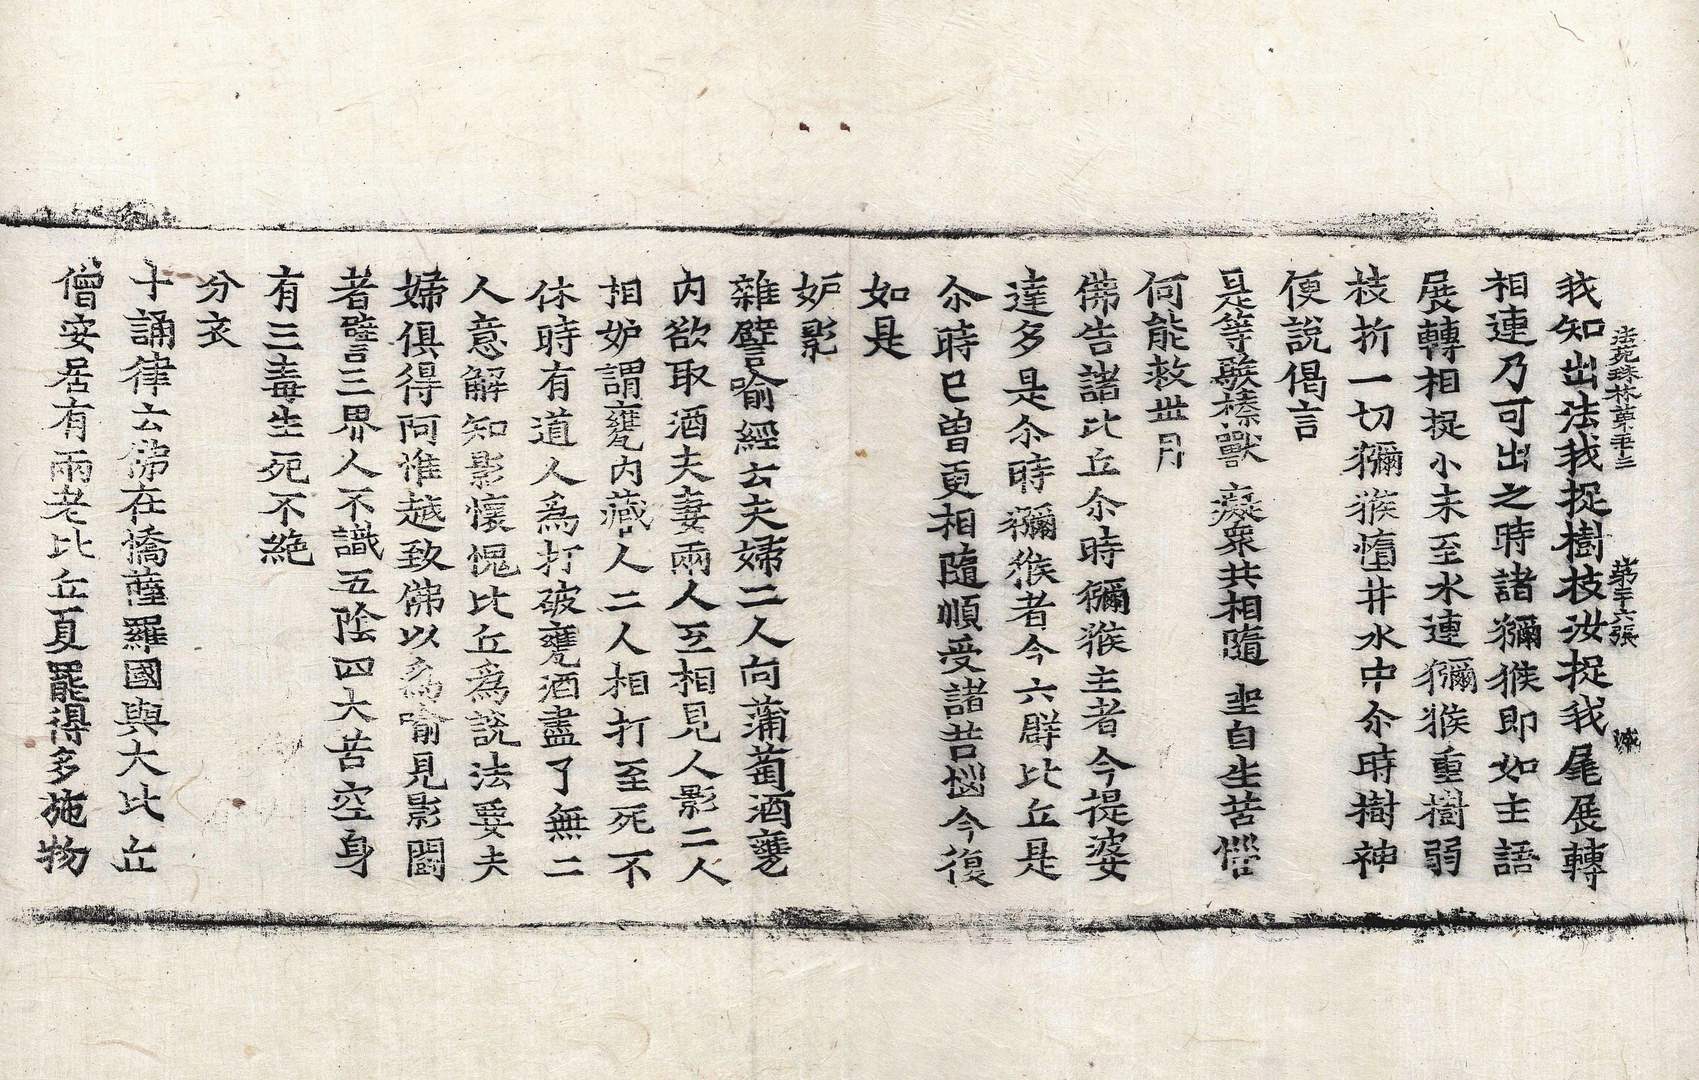 法苑珠林第五十三 第二十六張 陳
我知出法我捉樹枝汝捉我尾展轉
相連乃可出之時諸獼猴即如主語
展轉相捉小未至水連獼猴重樹弱
枝折一切獼猴墮井水中尒時樹神
便說偈言
是等騃榛獸 癡衆共相隨 坐自生苦惱
何能救世月
佛告諸比丘尒時獼猴主者今提婆
達多是尒時獼猴者今六群比丘是
尒時已曽更相隨順受諸苦惱今復
如是
妒影
雜譬喻經云夫婦二人向蒲萄酒甕
内欲取酒夫妻兩人互相見人影二人
相妒謂甕内藏人二人相打至死不
休時有道人為打破甕酒盡了無二
人意解知影懷愧比丘爲說法要夫
婦俱得阿惟越致佛以為喻見影鬪
者譬三界人不識五陰四大苦空身
有三毒生死不絶
分衣
十誦律云佛在憍薩羅國與大比丘
僧安居有兩老比丘夏罷得多施物